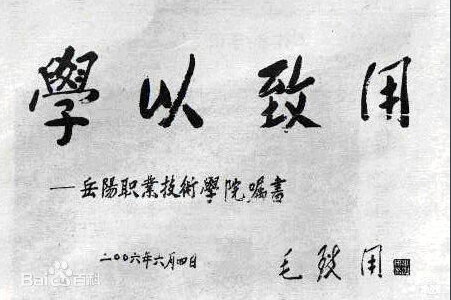 學以致用
—岳陽职業技術學院嘱書
二〇〇六年六月四日
毛致用
Bai百科